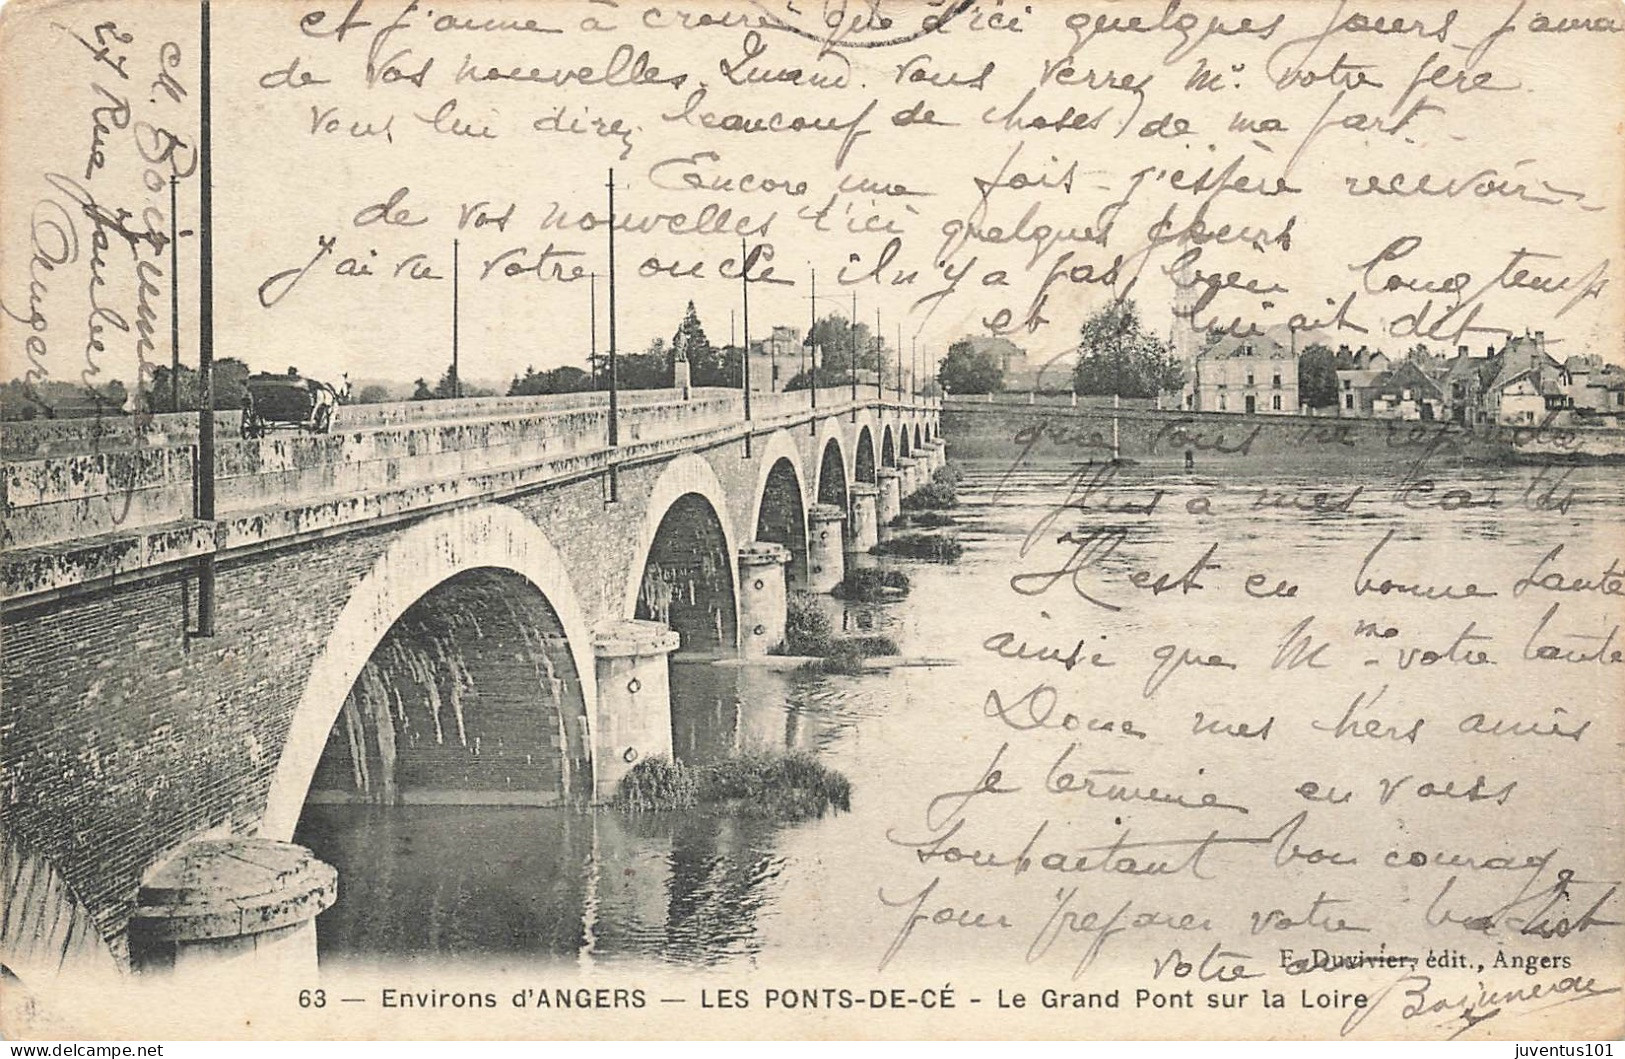 et j'aime à croire que d'ici quelques jours j'aurai
de vos nouvelles. Quand vous verres Mr votre père
vous lui direz beaucoup de choses de ma part
Encore une fois j'espère recevoir
de vos nouvelles d'ici quelques jours
J'ai vu votre oncle il n'y a pas bien longtemps
et lui ait dit
que vous ne repondé
plus à mes cartes
Il est en bonne santé
ainsi que Mme votre tante
Donc mes chers amis
Je termine en vous
souhaitant bon courage
pour préparer votre
votre ami
Ch.
27 Rue Jaubert
Angers
F. Duvivier, édit., Angers
63 — Environs d'ANGERS — LES PONTS-DE-CÉ - Le Grand Pont sur la Loire
juventus101